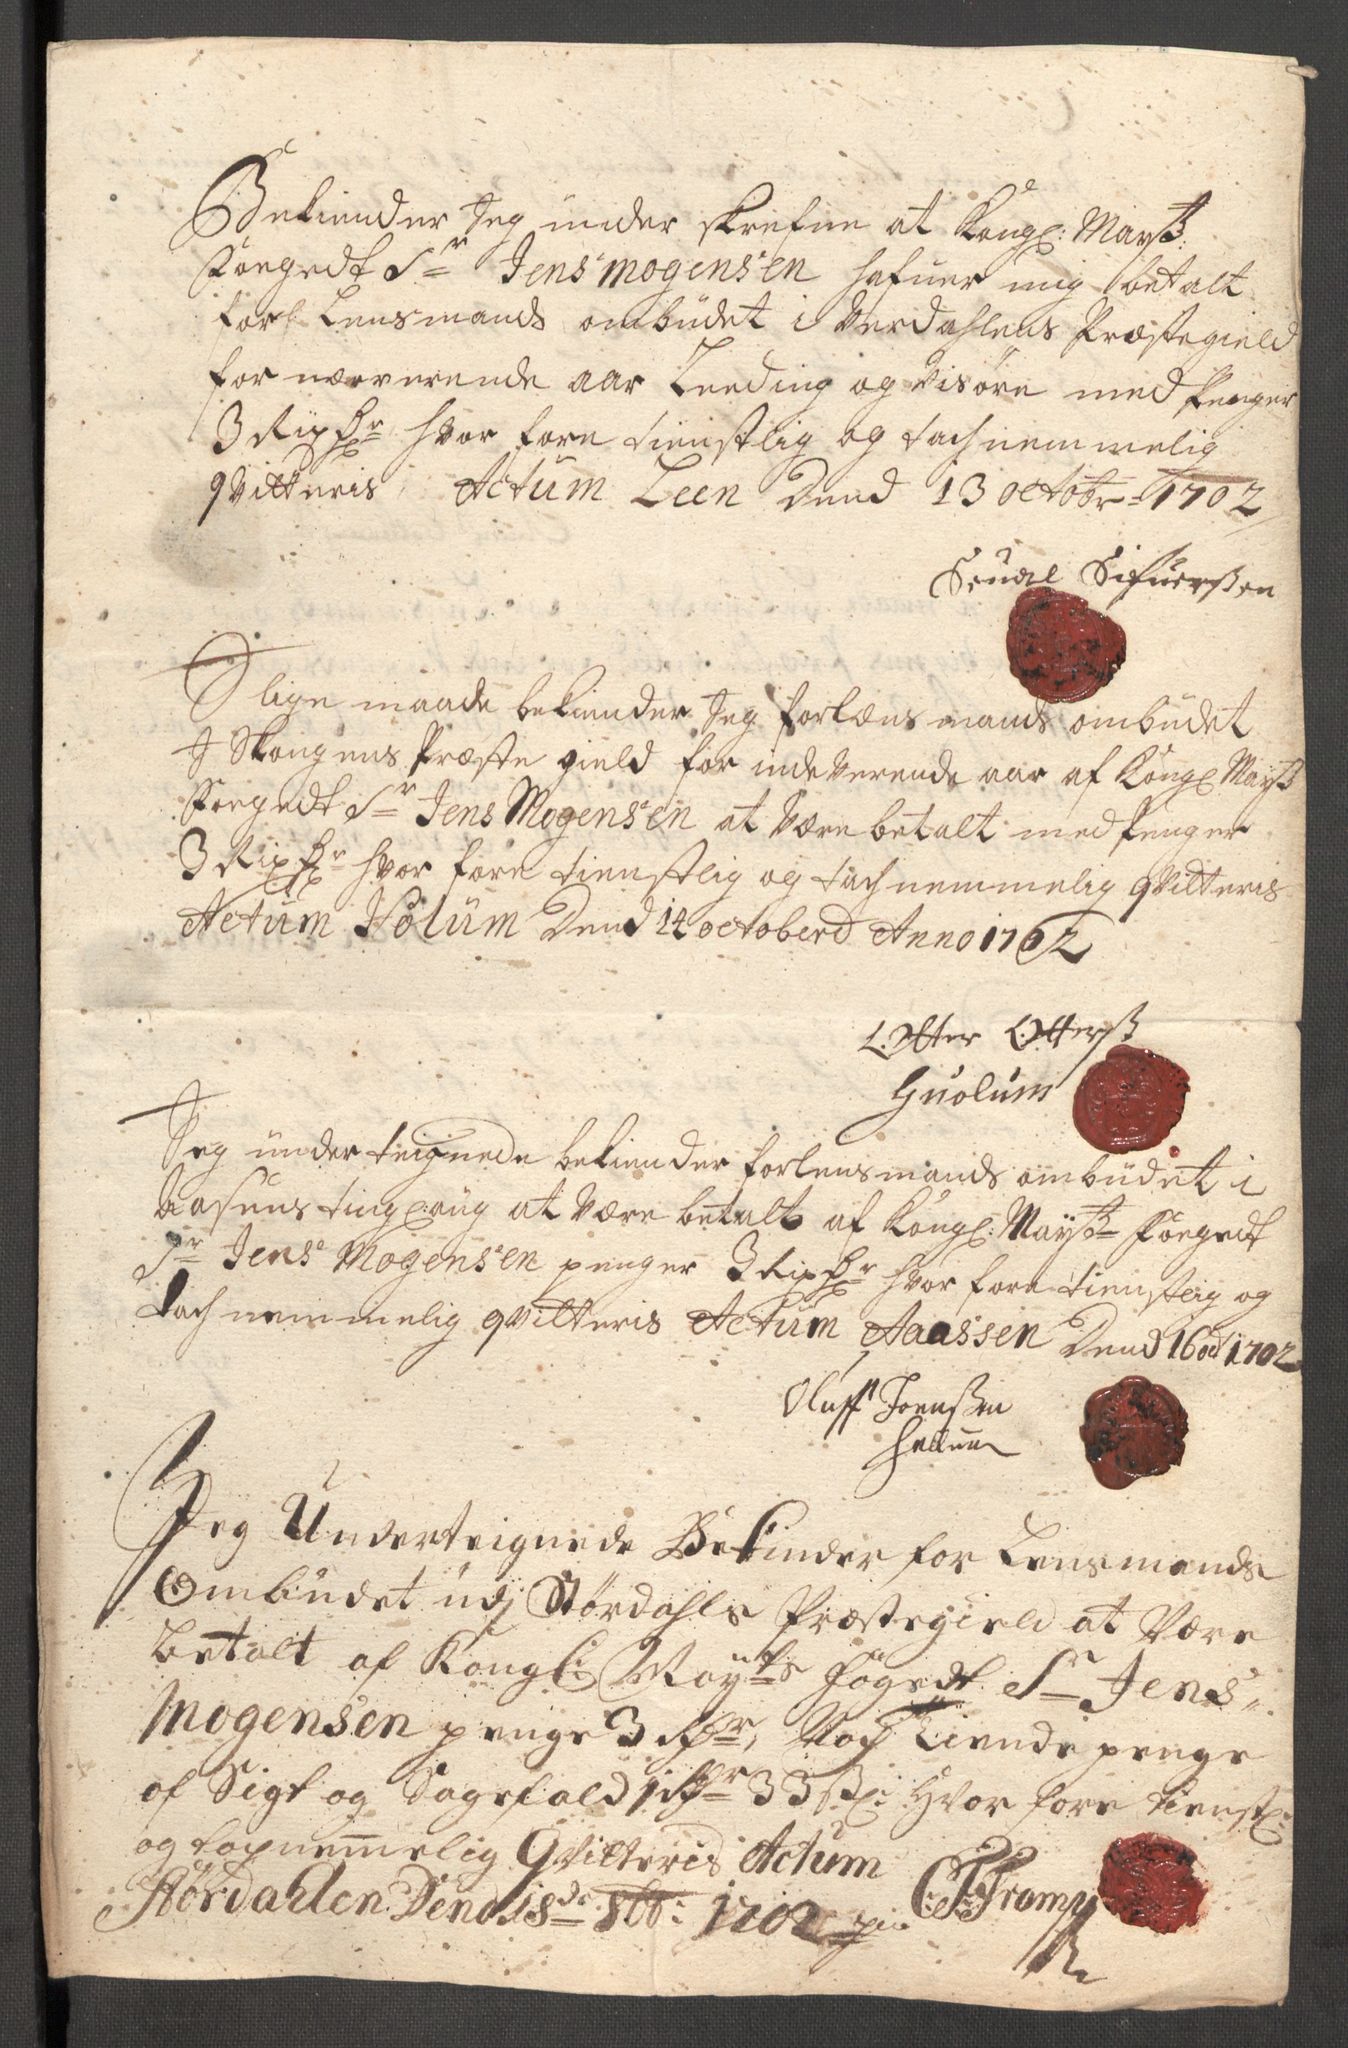 Bekiender Jeg under skrefne at Kongl: Mayß.
Foegedt Sr Jens Mogensen hafuer mig betalt
for Lensmands ombudet i Verdahlens Præstegield
for nærverende aar Leeding og Visøre med penger
3 Rixdr hvor fore tienstlig og tachnemmelig
qvitteris, Actum Leen Dend 13 octobr: 1702
Sifuerßen
J lige maade bekiender Jeg for Lænsmands ombudet
J Skongens Præste gield for indeverende aar af Kongl Mayß
Foegedt Sr Jens Mogensen at være betalt med penger
3 Rixdr hvor fore tienstlig og tachnemmelig qvitteris
Actum Holum Dend 14 octoberd Anno 1702
Otter Otterß
Huolum
Jeg under teignede bekiender for Lensmands ombudet i
Aasens tingl:aug at være betalt af Kongl: Mayß Foegedt
Sr Jens Mogensen penger 3 Rixdr hvor fore tienstlig og
tachnemmelig qvitteris Actum Aaassen Dend 16 oct 1702
Oluff Joenßen
Jeg Underteignede Bekinder for Lensmands
Ombudet udj Størdahls Præstegield at Være
betalt af Kongl: Mayts fogedt Sr Jens
Mogensen penge 3 Rdr, Noch Tiende penge
af Sigt og Sagefald 1 Rdr 33 ß: Hvor fore tienstl:
og tacknemmelig Qvitteris Actum
Størdahlen Dend 18de 8br: 1702
Tromp